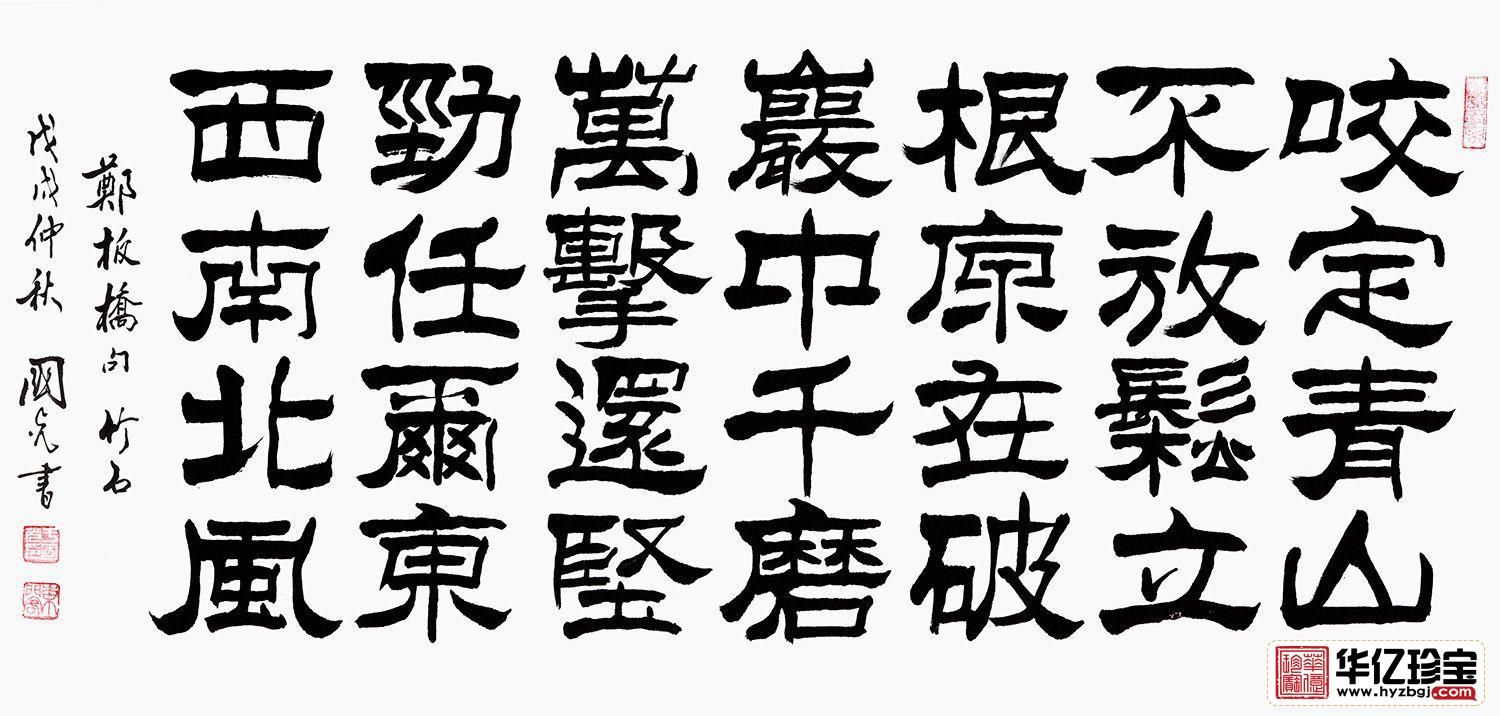 咬定青山
不放鬆立
根原在破
巖中千磨
萬擊還堅
勁任爾東
西南北風
鄭板橋句 竹石
戊戌仲秋 國先書
华亿珍宝
www.hyzbgj.com